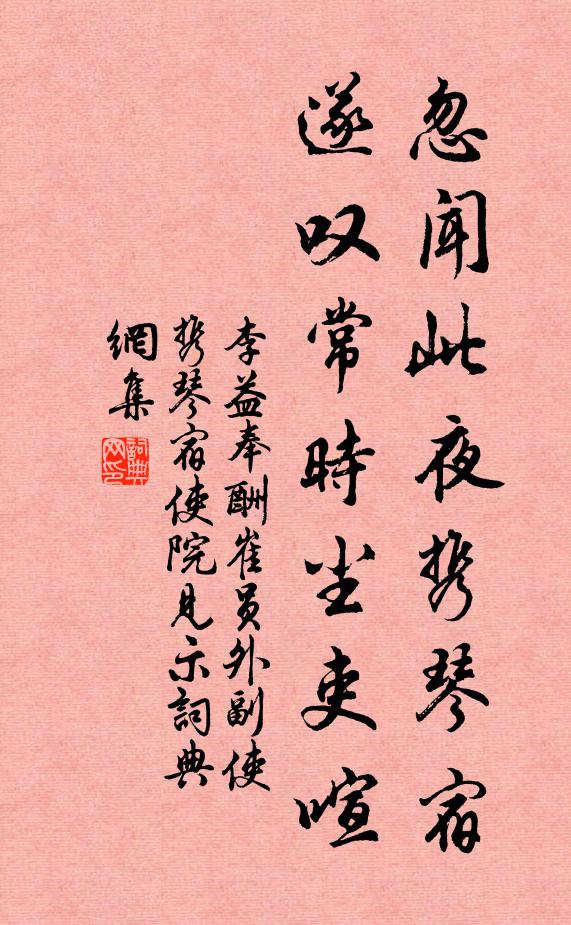 忽闻此夜携琴宿
遂叹常時尘吏喧
李益奉酬崔员外副使
携琴宿使院见示詞典
網集
詞典网印